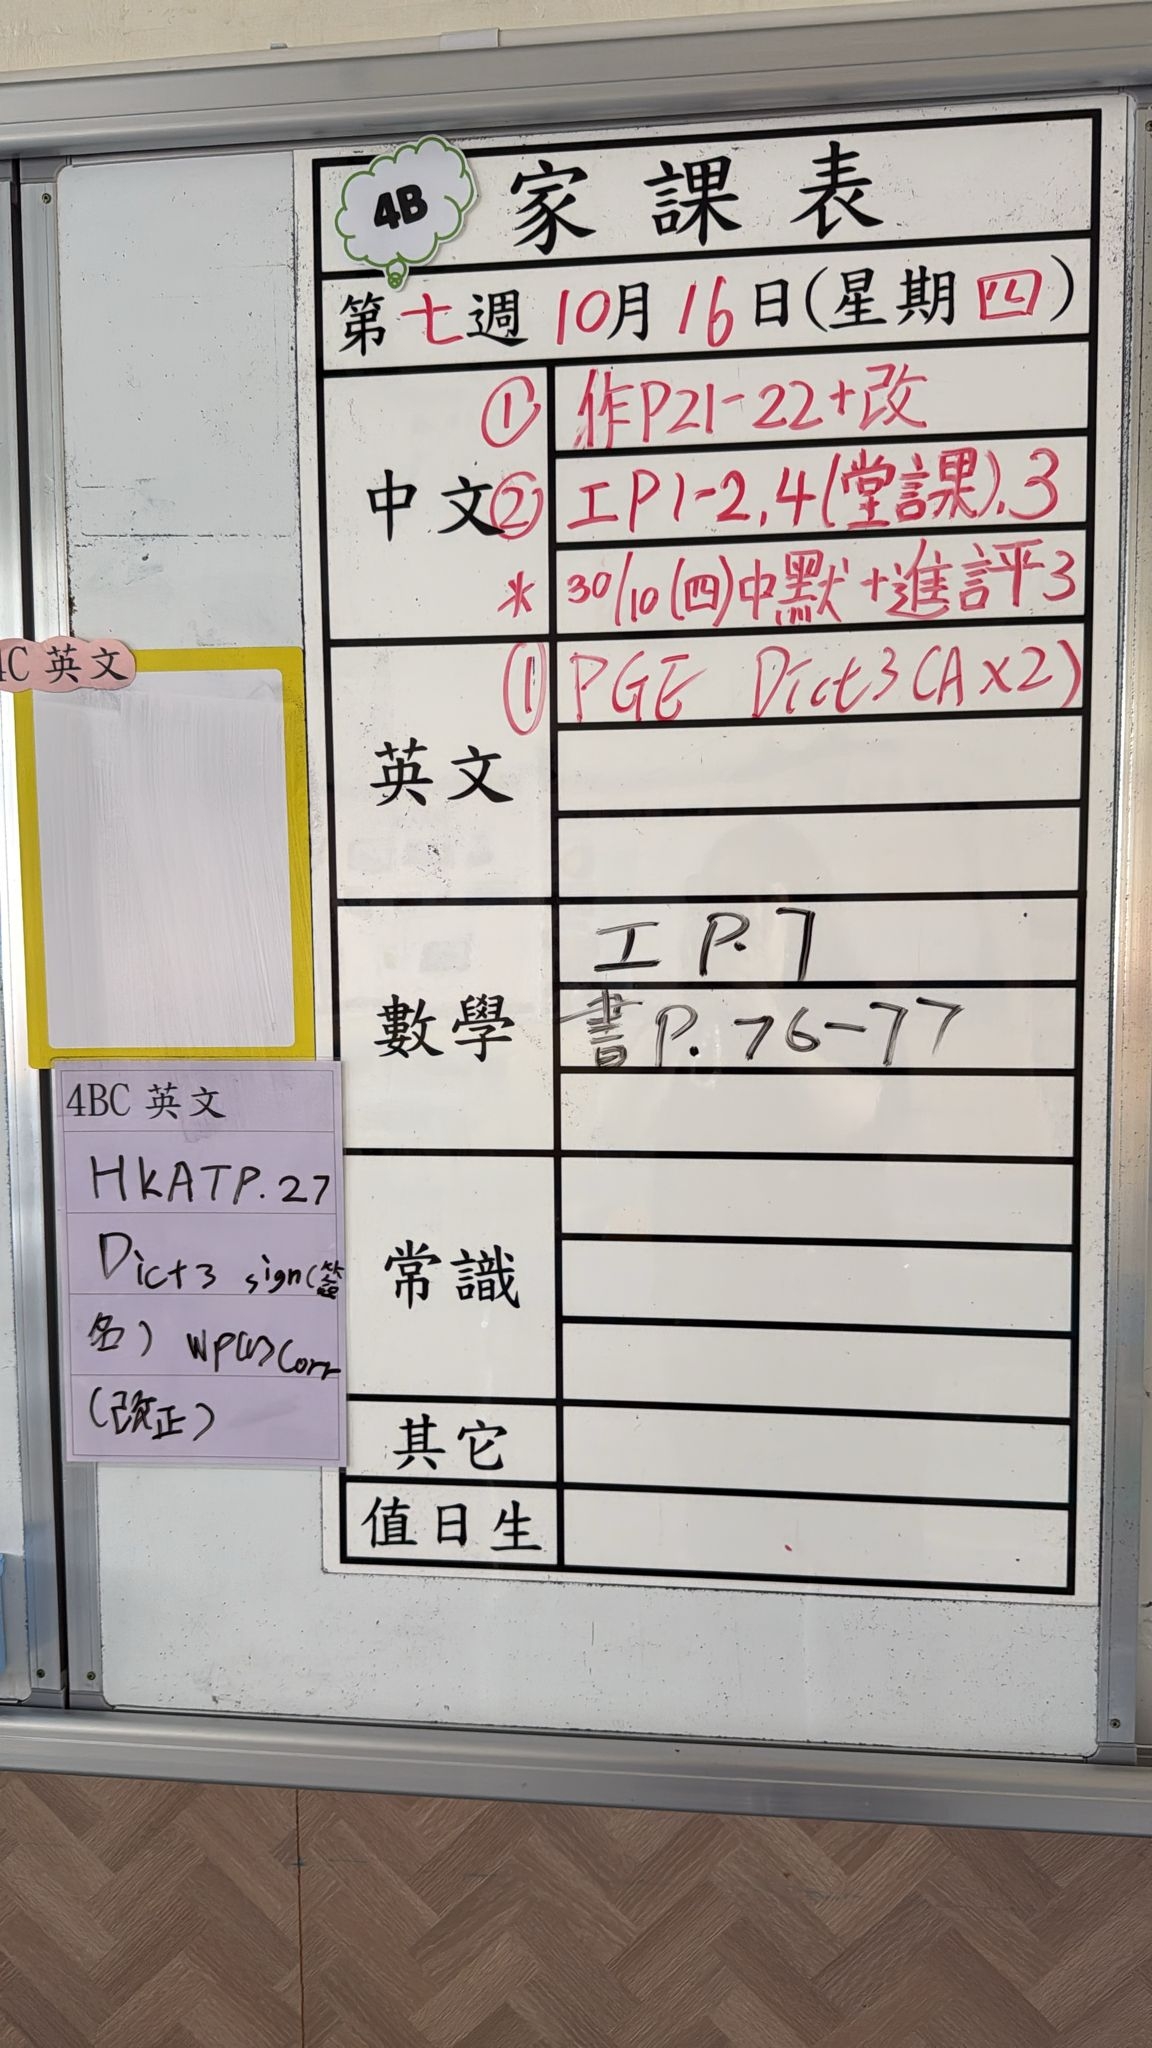 4B 家課表
第七週 10月16日(星期四)
中文
① 作P21-22+改
② 工P1-2,4(堂課),3
* 30/10(四)中默+進評3
英文
① PGE Dict3(A×2)
數學
工 P.7
書P.76-77
常識
其它
值日生
4C 英文
4BC 英文
HKATP.27
Dict3 sign(簽
名) WP(1)Corr
(改正)